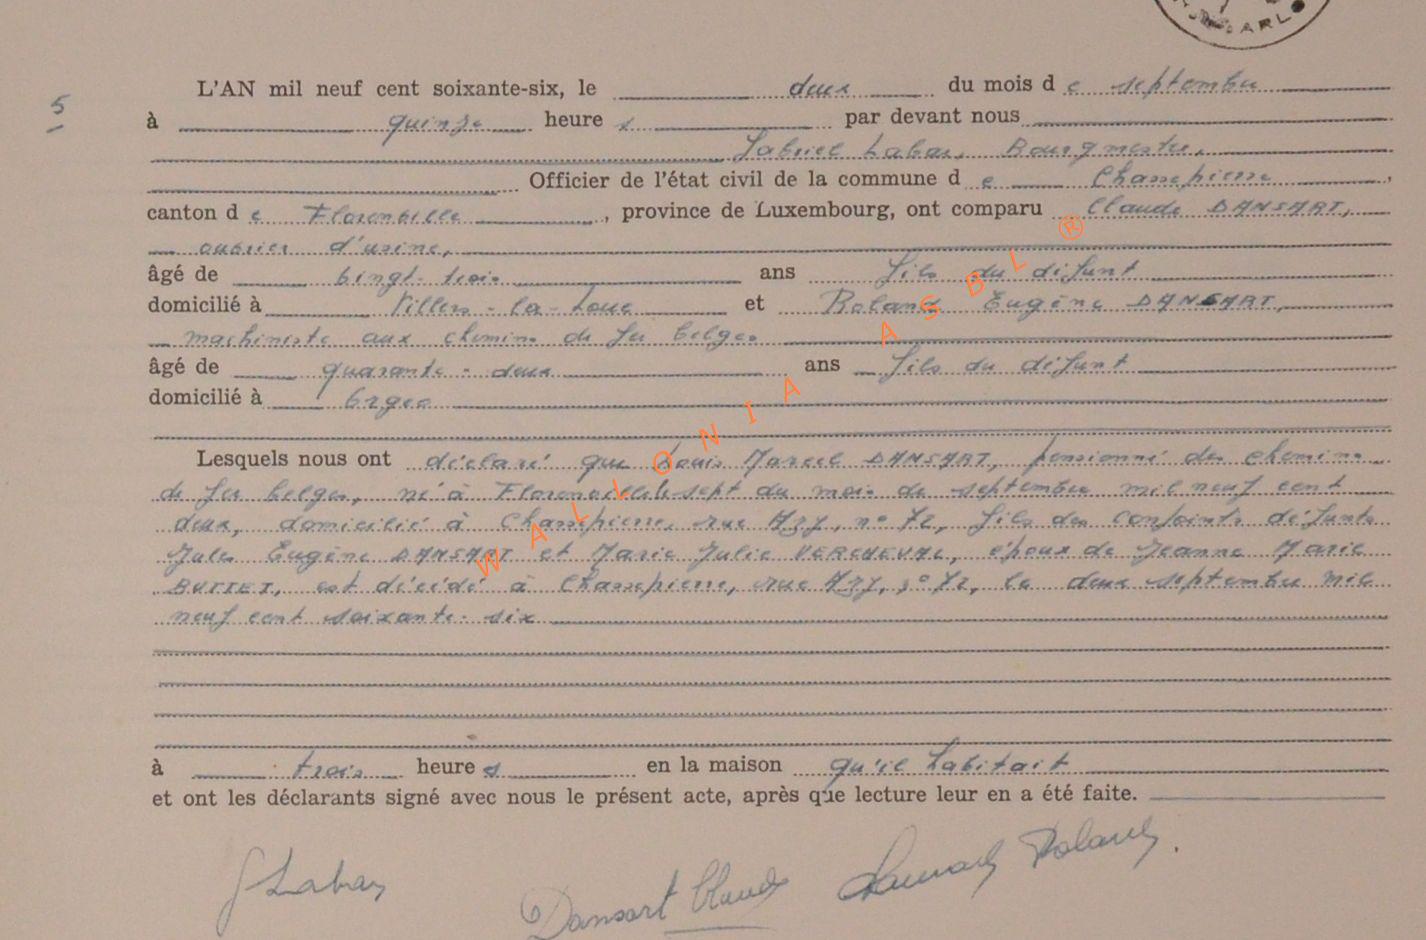 ARLO
5
L'AN mil neuf cent soixante-six, le deux du mois de septembre
à quinze heures par devant nous
Gabriel Labar, Bourgmestre,
Officier de l'état civil de la commune de Chassepierre,
canton de Florenville, province de Luxembourg, ont comparu Claude DANSART,
ouvrier d'usine,
âgé de vingt-trois ans fils du défunt
domicilié à Villers-la-Loue et Roland Eugène DANSART,
machiniste aux chemins de fer belges
âgé de quarante-deux ans fils du défunt
domicilié à
Lesquels nous ont déclaré que Louis Marcel DANSART, pensionné des chemins
de fer belges, né à Florenville le sept du mois de septembre mil neuf cent
deux, domicilié à Chassepierre, rue n° 72, fils des conjoints défunts
Jules Eugène DANSART et Marie Julie VERCHEVAL, époux de Jeanne Marie
BUTTET, est décédé à Chassepierre, rue n° 72, le deux septembre mil
neuf cent soixante-six
à trois heures en la maison qu'il habitait
et ont les déclarants signé avec nous le présent acte, après que lecture leur en a été faite.
G Labar
Dansart Claude
Dansart Roland.
WALLONIA ASBL ®